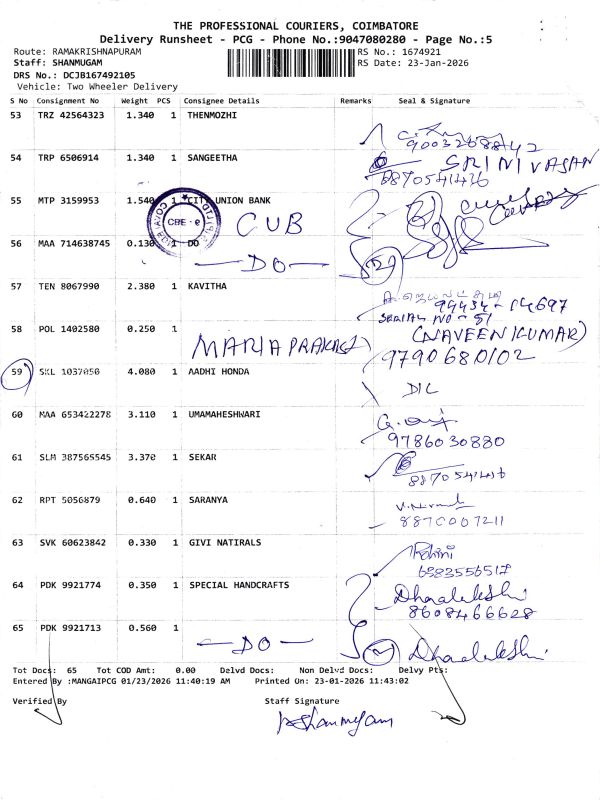 THE PROFESSIONAL COURIERS, COIMBATORE
Delivery Runsheet - PCG - Phone No.:9047080280 - Page No.:5
Route: RAMAKRISHNAPURAM RS No.: 1674921
Staff: SHANMUGAM RS Date: 23-Jan-2026
DRS No.: DCJB167492105
Vehicle: Two Wheeler Delivery
S No Consignment No Weight PCS Consignee Details Remarks Seal & Signature
53 TRZ 42564323 1.340 1 THENMOZHI
9003268842
54 TRP 6506914 1.340 1 SANGEETHA SRINIVASAN
8870541436
55 MTP 3159953 1.540 1 CITY UNION BANK
CUB
CBE - e
56 MAA 714638745 0.130 1 DO
DO
57 TEN 8067990 2.380 1 KAVITHA
99434-14697
SERIAL NO - 51
58 POL 1402580 0.250 1 (NAVEEN KUMAR)
MARIA PRAKASH 9790680102
59 SKL 1037050 4.080 1 AADHI HONDA
DIL
60 MAA 653422278 3.110 1 UMAMAHESHWARI
9786030880
61 SLM 387565545 3.370 1 SEKAR
8870541436
62 RPT 5056879 0.640 1 SARANYA
8870007211
63 SVK 60623842 0.330 1 GIVI NATIRALS
Rohini
6383556517
64 PDK 9921774 0.350 1 SPECIAL HANDCRAFTS
Dhanalakshmi
8608466628
65 PDK 9921713 0.560 1
DO Dhanalakshmi
Tot Docs: 65 Tot COD Amt: 0.00 Delvd Docs: Non Delvd Docs: Delvy Pts:
Entered By :MANGAIPCG 01/23/2026 11:40:19 AM Printed On: 23-01-2026 11:43:02
Verified By Staff Signature
Shanmugam